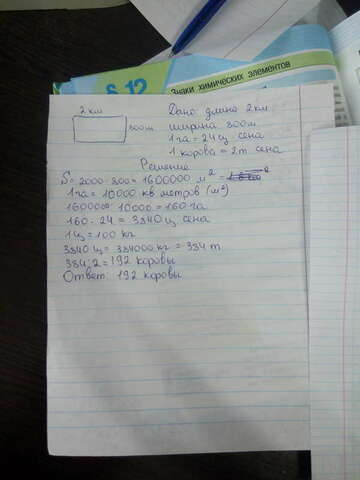 § 12
Знаки химических элементов
2 км
800м
Дано: длина 2 км
ширина 800м
1 га = 24 ц сена
1 корова = 2т сена
Решение
S = 2000 · 800 = 1600000 м² =
1 га = 10000 кв метров (м²)
1600000 : 10000 = 160 га
160 · 24 = 3840 ц сена
1 ц = 100 кг
3840 ц = 384000 кг = 384 т
384 : 2 = 192 коровы
Ответ: 192 коровы